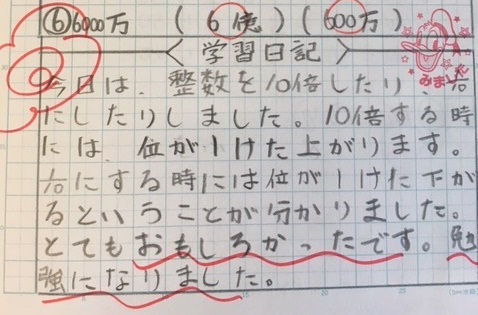 ⑥6000万 (6億)(600万)
学習日記
今日は、整数を10倍したり、1/10
にしたりしました。10倍する時
には、位が1けた上がります。
1/10にする時には位が1けた下が
るということが分かりました。
とてもおもしろかったです。勉
強になりました。
みました